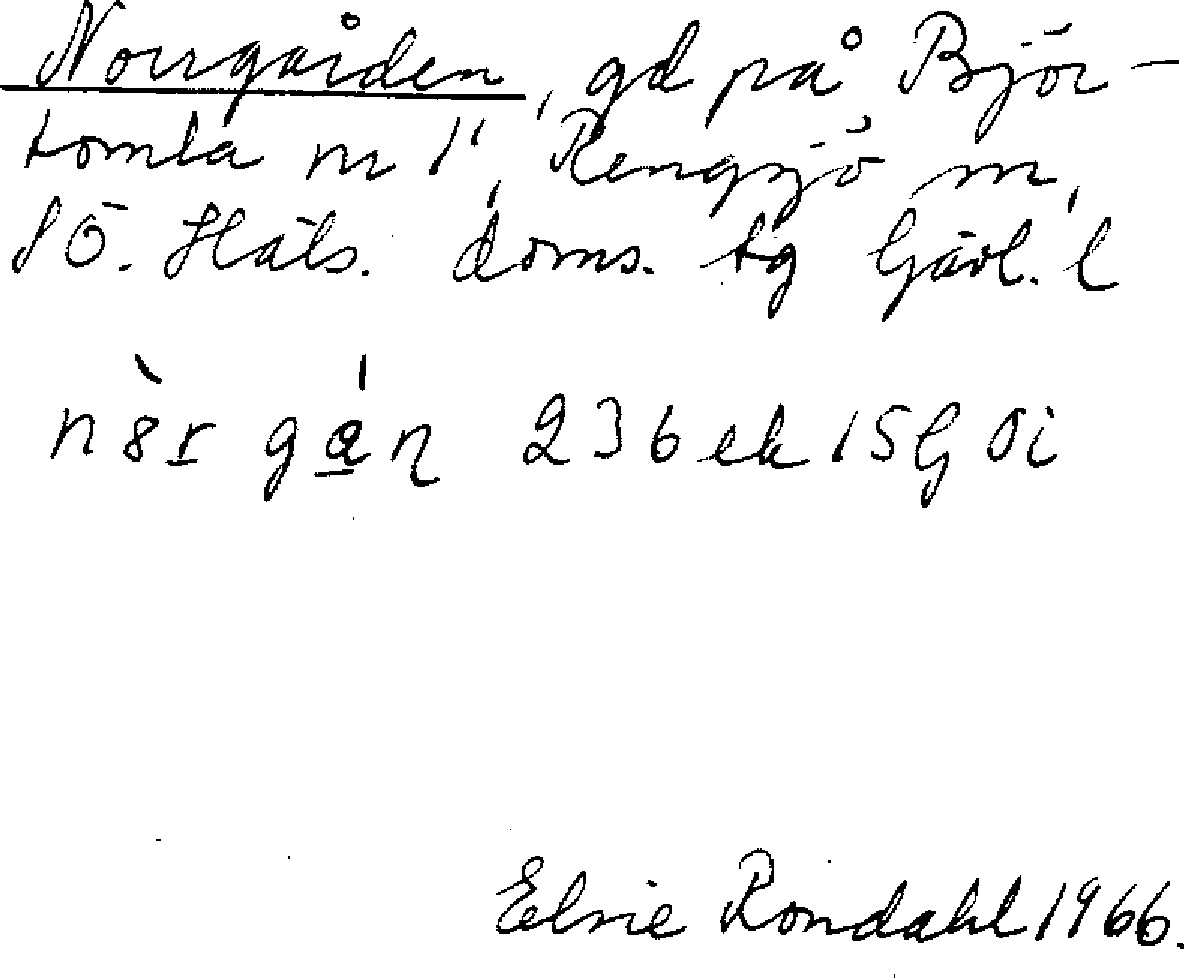 Norrgården, gd på Björ-
tomta nr 1", Rengsjö sn,
SÖ. Häls. doms. tg Gävl. l
236 ek 15G 0i
Elsie Rondahl 1966.